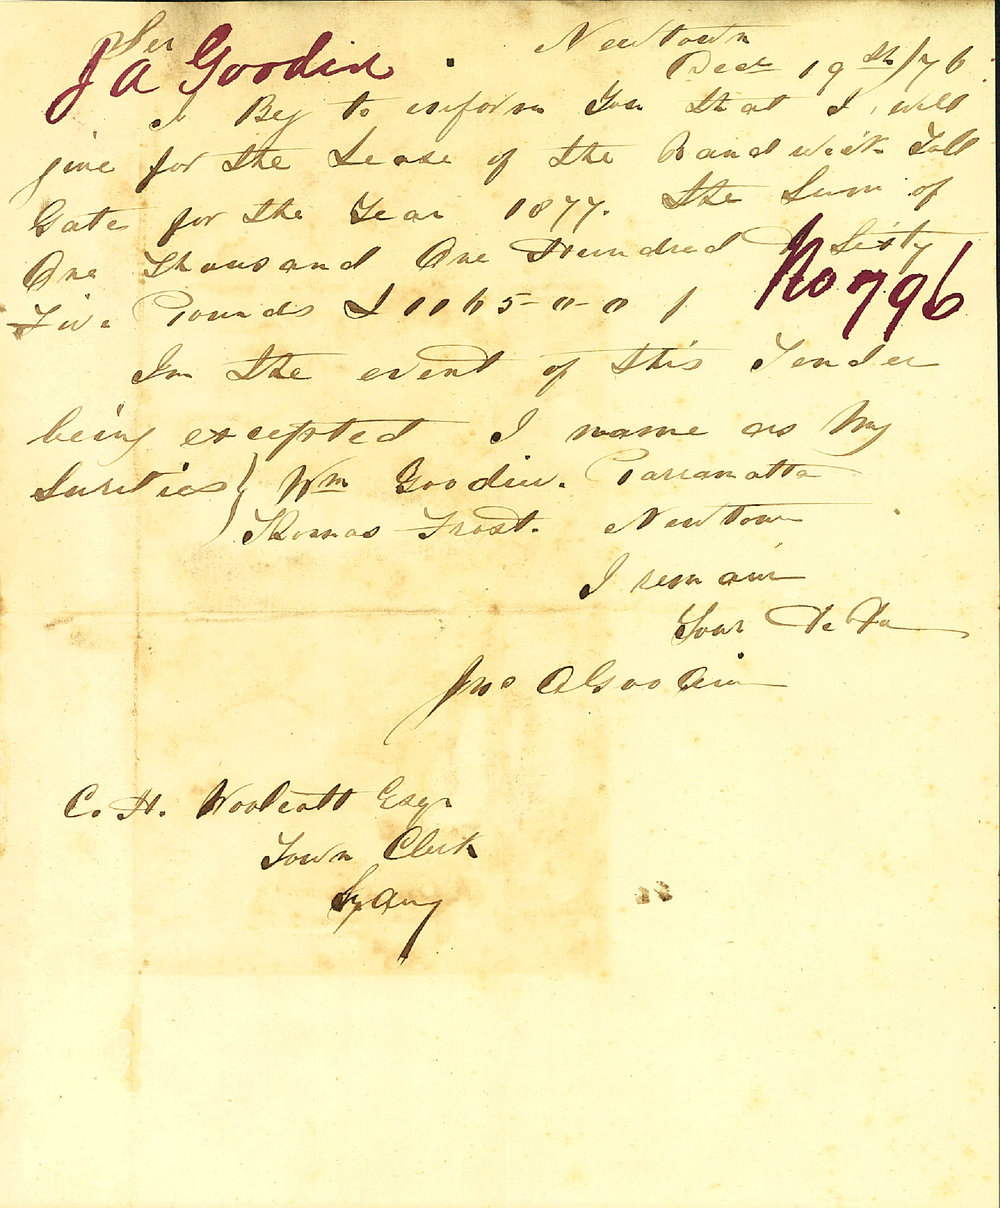 Sir
J A Goodin
Newtown
Decr 19th/76
I Beg to inform You that I will
give for the Lease of the Randwick Toll
Gate for the Year 1877. the Sum of
One Thousand One Hundred & Sixty
Five Pounds £1165-0-0
No 796
In the event of this Tender
being excepted I name as My
Sureties } Wm Goodin. Parramatta
Thomas Frost. Newtown
I remain
Your
Jno A Goodin
C. H. Woolcott Esqr
Town Clerk